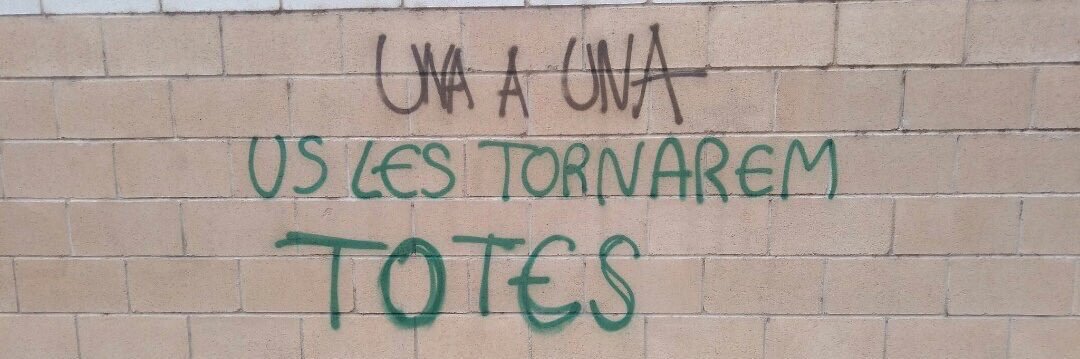 UNA A UNA
US LES TORNAREM
TOTES